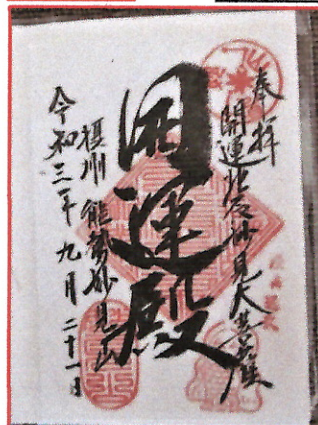 奉拝
開運北辰妙見大菩薩
開運殿
摂州 能勢妙見山
令和三年 九月 二十一日